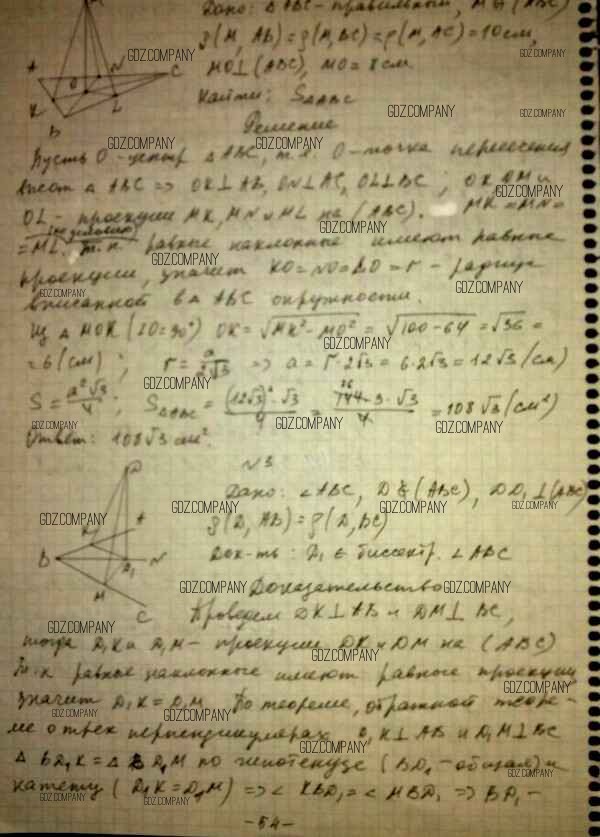 Дано: △ABC - правильный, M ∉ (ABC)
ρ(M, AB) = ρ(M, BC) = ρ(M, AC) = 10 см,
MO ⊥ (ABC), MO = 8 см
Найти: S△ABC
Решение
Пусть O - центр △ABC, т.е. O - точка пересечения
высот △ABC => OK ⊥ AB, ON ⊥ AC, OL ⊥ BC; OK, OM и
OL - проекции MK, MN и ML на (ABC). MK = MN =
= ML (по условию) т.к. равные наклонные имеют равные
проекции, значит KO = NO = LO = r - радиус
вписанной в △ABC окружности.
Из △MOK (∠O = 90°) OK = √(MK² - MO²) = √(100 - 64) = √36 =
= 6 (см); r = a/(2√3) => a = r · 2√3 = 6 · 2√3 = 12√3 (см)
S = a²√3/4; S△ABC = (12√3)² · √3/4 = 144 · 3 · √3/4 = 108√3 (см²)
Ответ: 108√3 см².
N3
Дано: ∠ABC, D ∉ (ABC), DD₁ ⊥ (ABC)
ρ(D, AB) = ρ(D, BC)
Док-ть: D₁ ∈ биссектр. ∠ABC
Доказательство
Проведем DK ⊥ AB и DM ⊥ BC,
тогда D₁K и D₁M - проекции DK и DM на (ABC)
Т.к. равные наклонные имеют равные проекции,
значит D₁K = D₁M. По теореме, обратной теоре-
ме о трех перпендикулярах D₁K ⊥ AB и D₁M ⊥ BC
△BD₁K = △BD₁M по гипотенузе (BD₁ - общая) и
катету (D₁K = D₁M) => ∠KBD₁ = ∠MBD₁ => BD₁ -
- 54 -
GDZ.COMPANY